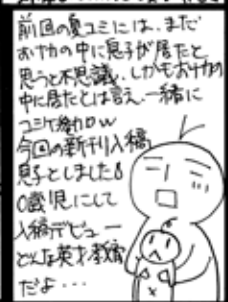 前回の夏コミには、まだ
おナカの中に息子が居たと
思うと不思議、しかもおナカの
中に居たとは言え、一緒に
コミケ参加ｗ
今回の新刊入稿
息子としました
0歳児にして
入稿デビュー
どんな英才教育
だよ・・・